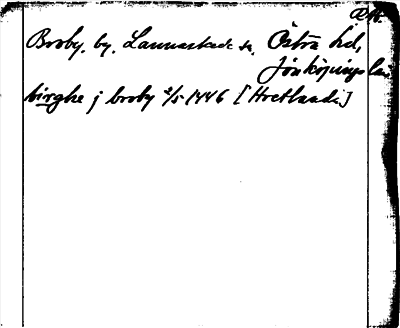 Broby, by, Lannaskede sn, Östra hd,
Jönköpings län
birghe j broby 2/5 1446 [Hvetlanda]